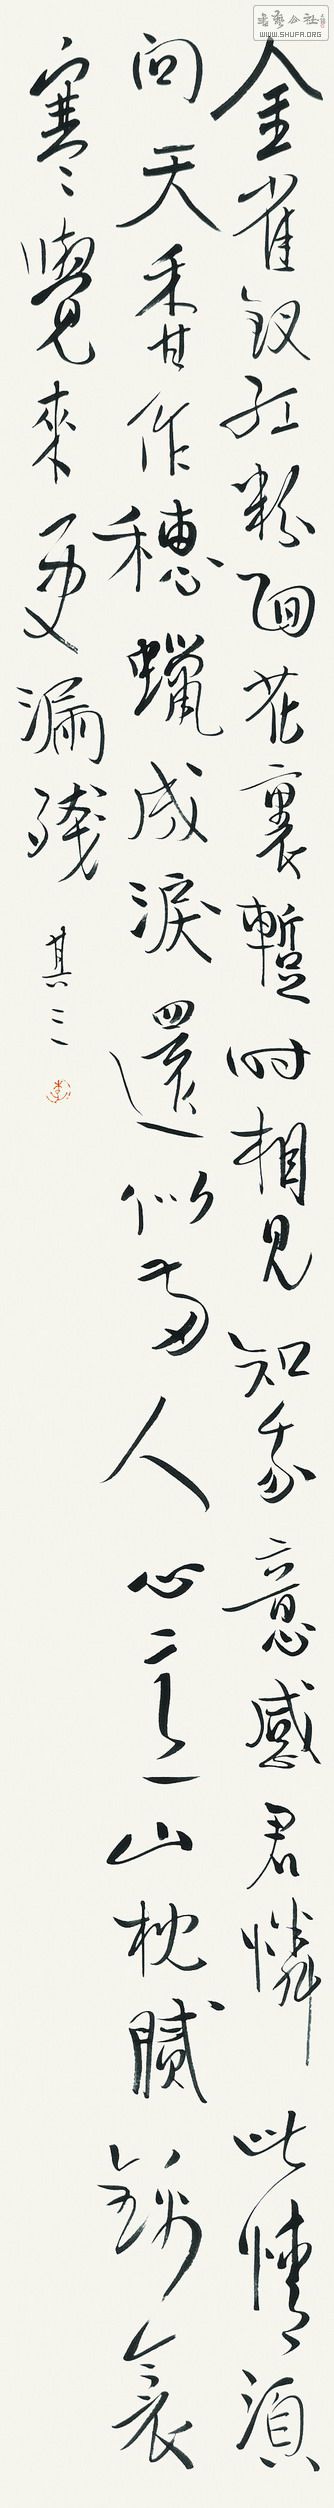 金雀釵紅粉面花裏蹔时相見知我意感君憐此情須
問天香作穗蠟成淚還似兩人心意山枕膩錦衾
寒覺來更漏殘 其三
書藝公社
WWW.SHUFA.ORG